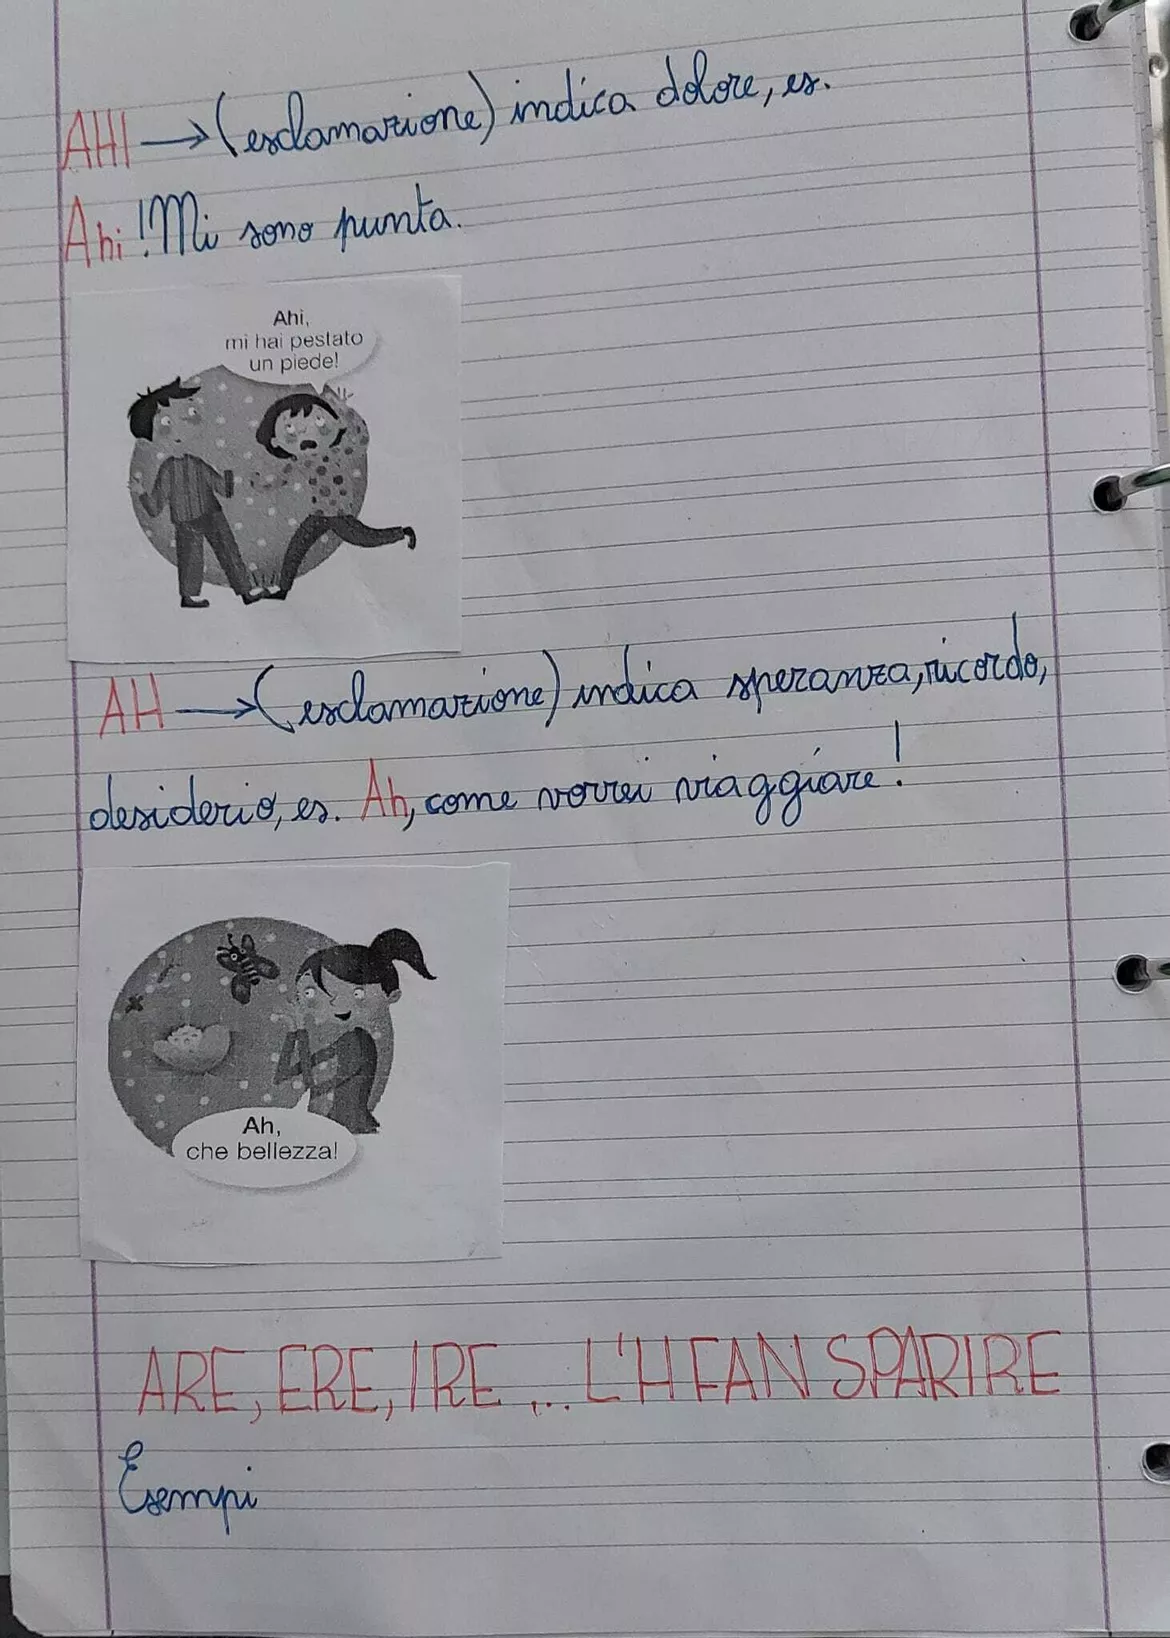 AHI → (esclamazione) indica dolore, es.
Ahi! Mi sono punta.
Ahi,
mi hai pestato
un piede!
AH → (esclamazione) indica speranza, ricordo,
desiderio, es. Ah, come vorrei viaggiare!
Ah,
che bellezza!
ARE, ERE, IRE ... L'H FAN SPARIRE
Esempi